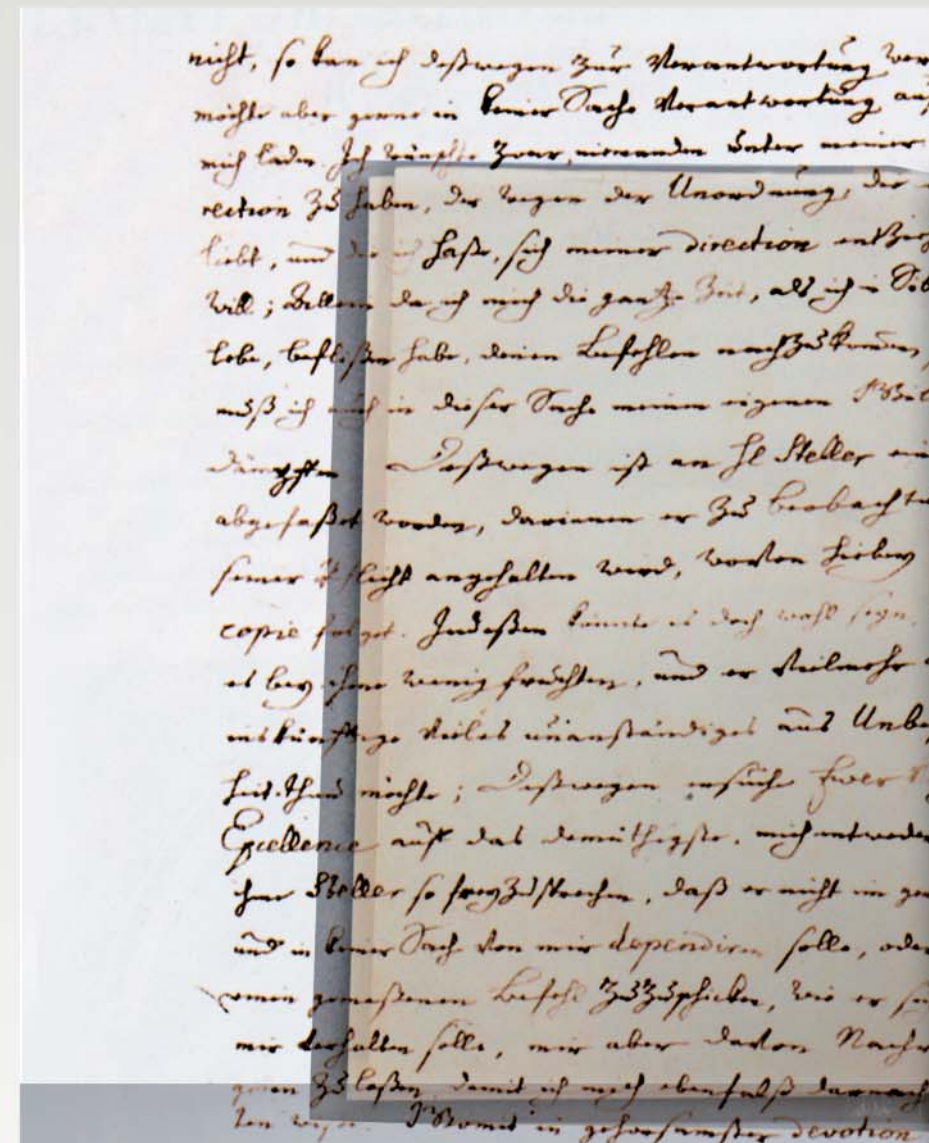 nicht, so kan ich deßwegen zur Verantwortung
möchte aber gerne in keiner Sache Verantwortung auf
mich laden. Ich wünschte zwar, niemanden unter meiner
rection zu haben, der wegen der Unordnung, die
liebt, und die ich haße, sich meiner direction
will; allein da ich mich die gantze Zeit, als ich in
lebe, beflißen habe, denen Befehlen nachzukommen,
muß ich auch in dieser Sache meinen eigenen
dämpffen Deßwegen ist an H Steller
abgefaßet worden, darinnen er zu
seiner Pflicht angehalten wird, wovon hiebey
copie folget. Indeßen könnte es doch wohl seyn,
es bey ihme wenig fruchten, und er vielmehr
inskünftige vieles unanständiges aus
heit thun möchte; Deßwegen ersuche Ewer
Excellence auff das demüthigste, mich entweder
ihne Steller so frey zu sprechen, daß er nicht im
und in keiner Sache von mir dependiren solle, oder
einen gemeßenen Befehl zuzuschicken, wie er
mir verhalten solle, mir aber davon
geben zu laßen, damit ich mich ebenfalß darnach
Womit in gehorsamster devotion